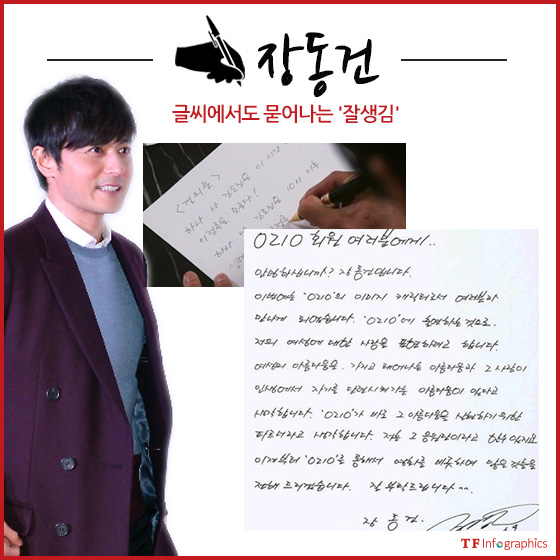 장동건
글씨에서도 묻어나는 '잘생김'
<결의문>
하나 나 김도진은 이 시간
이정록을 모른다!
하나
0210 회원 여러분에게..
안녕하십니까? 장동건입니다.
이번에는 '0210'의 이미지 캐릭터로서 여러분과
만나게 되었습니다. '0210'에 출연하는 것으로.
저의 여성에 대한 사랑을 표현하려고 합니다.
여성의 아름다움은. 가지고 태어나는 아름다움과 그 사람이
인생에서 자기를 단련시켜가는 아름다움이 있다고
생각합니다. '0210'가 바로 그 아름다움을 실현하기 위한
파트너라고 생각합니다. 저는 그 응원단이라고
이제부터 '0210'를 통해서 영화를 비롯하여 많은 것들을
전해 드리겠습니다. 잘 부탁드립니다 ^^.
장 동건.
TF Infographics